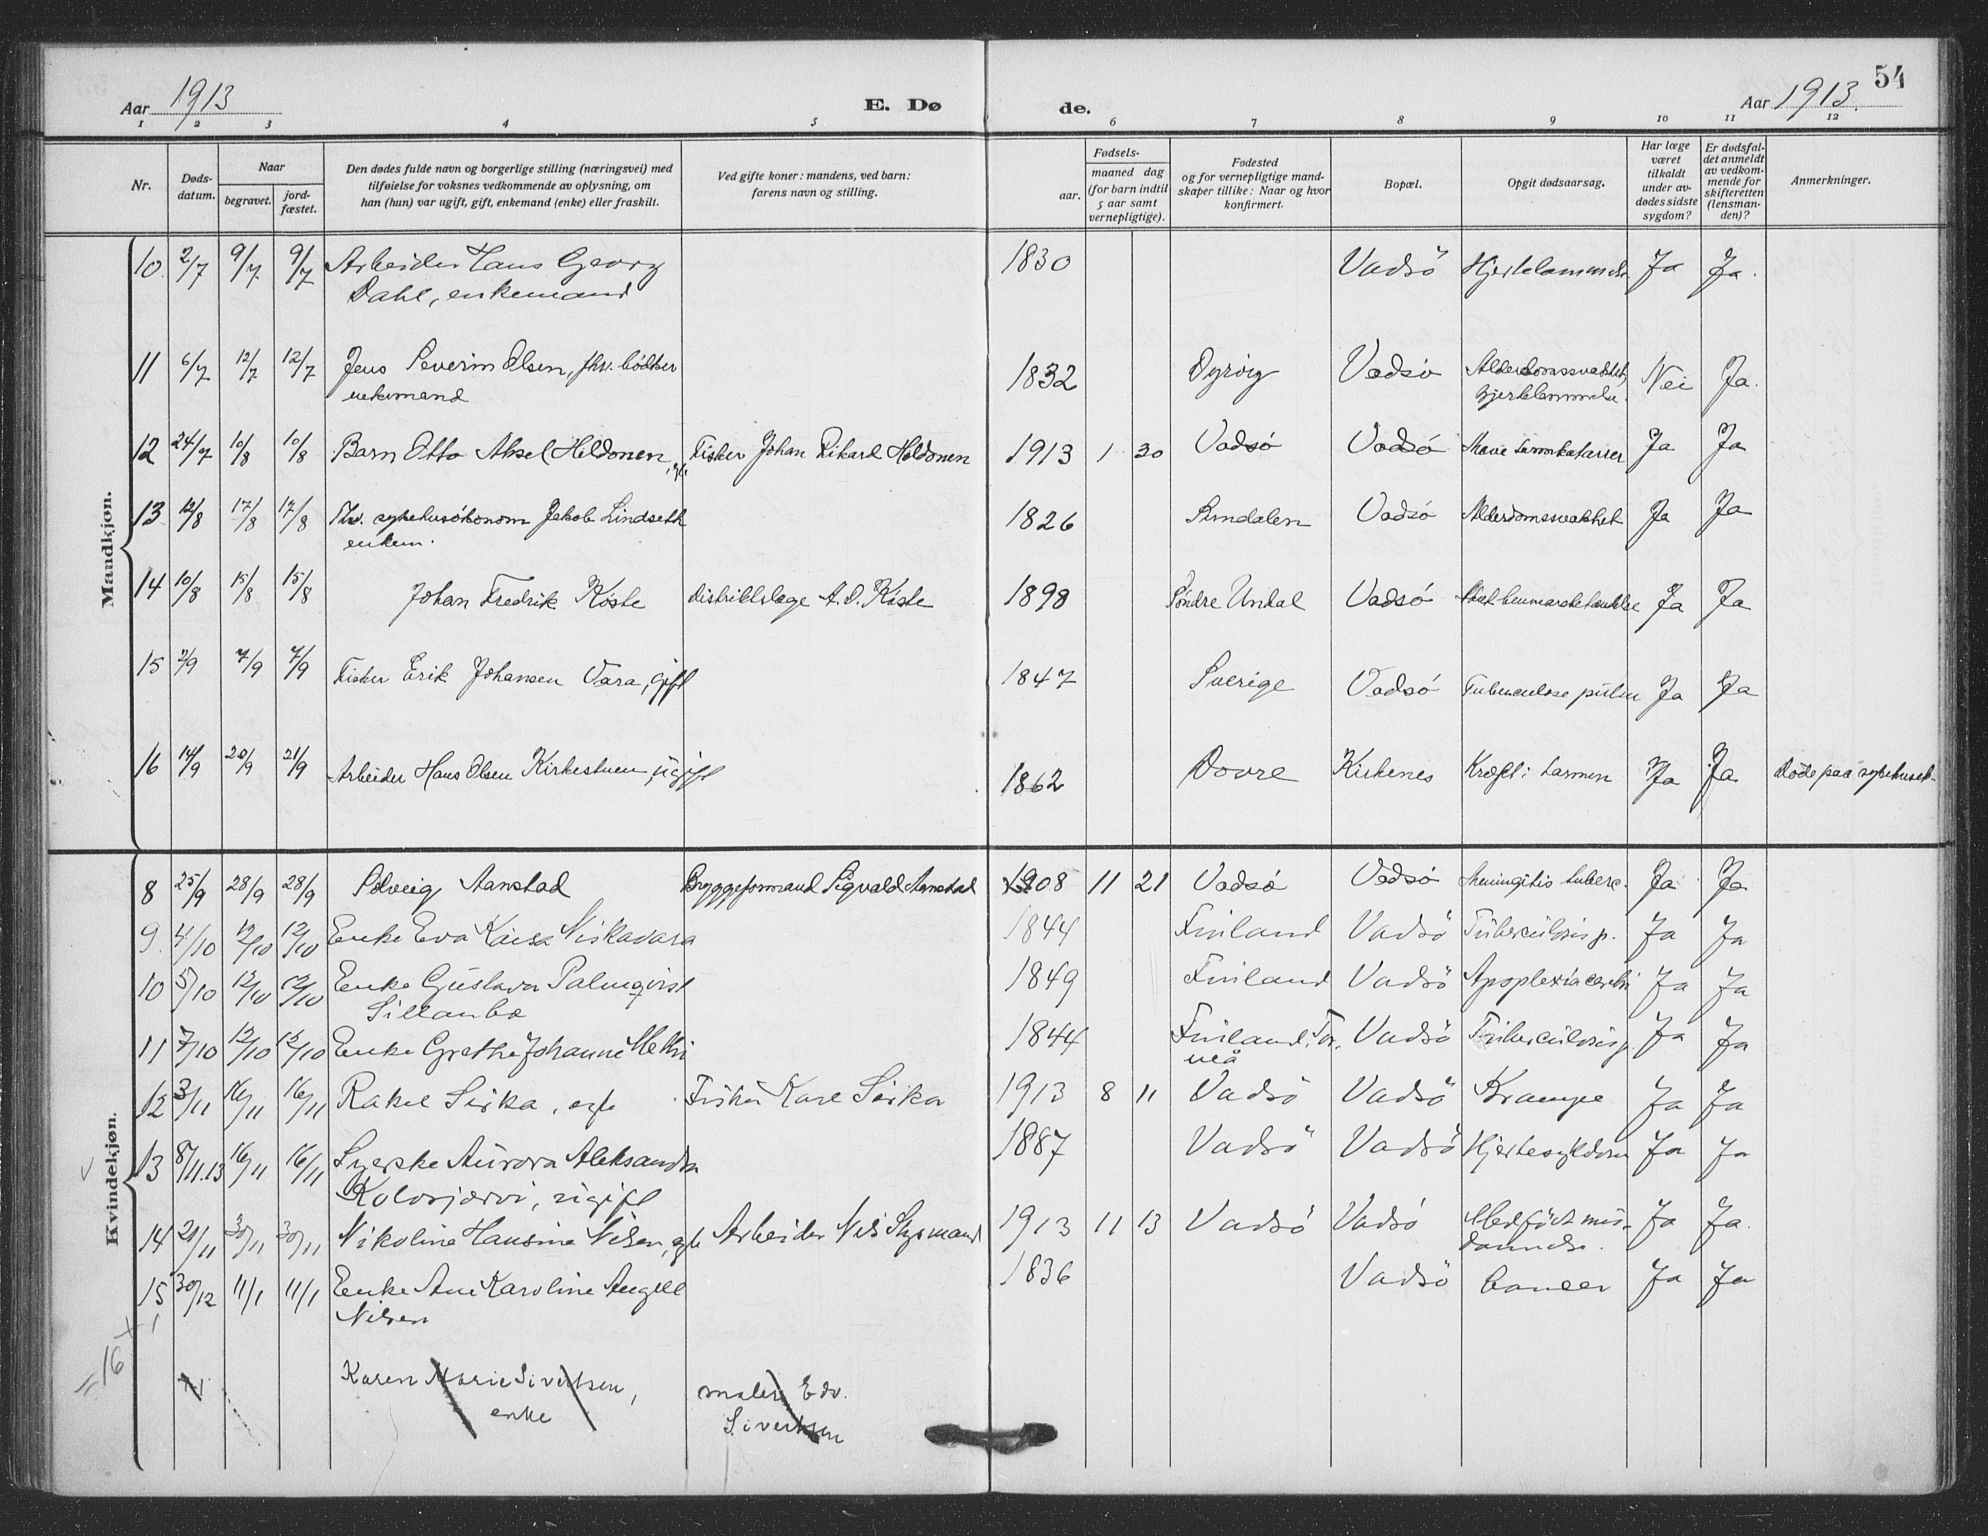 54
Aar 1913
E. Dø
de.
Aar 1913.
1 2 3 4 5 6 7 8 9 10 11 12
Nr.
Døds-
datum.
Naar
begravet.
jord-
fæstet.
Den dødes fulde navn og borgerlige stilling (næringsvei) med
tilføielse for voksnes vedkommende av oplysning, om
han (hun) var ugift, gift, enkemand (enke) eller fraskilt.
Ved gifte koner: mandens, ved barn:
farens navn og stilling.
Fødsels-
aar.
maaned dag
(for barn indtil
5 aar samt
vernepligtige).
Fødested
og for vernepligtige mand-
skaper tillike: Naar og hvor
konfirmert.
Bopæl.
Opgit dødsaarsag.
Har læge
været
tilkaldt
under av-
dødes sidste
sygdom?
Er dødsfal-
det anmeldt
av vedkom-
mende for
skifteretten
(lensman-
den)?
Anmerkninger.
Mandkjøn.
10. 2/7 9/7 9/7 Arbeider Hans Georg 1830 Vadsö Hjertelammelse Ja Ja.
Dahl, enkemand
11 6/7 12/7 12/7 Jens Severin Olsen, fhv. bødker 1832 Dyröy Vadsö Alderdomssvakhet, Nei Ja.
enkemand hjertelammelse.
12 24/7 10/8 10/8 Barn Otto Aksel Heldonen, egte Fisker Johan Rikard Heldonen 1913 1 30 Vadsö Vadsö Mave tarmkatarrer Ja Ja
13. 12/8 17/8 17/8 Fhv. sykehusökonom Jakob Lindseth 1826 Bindalen Vadsö Alderdomssvakhet Ja Ja
enkem.
14 10/8 15/8 15/8 Johan Fredrik Köste distriktslæge A. D. Köste 1898 Söndre Undal Vadsö Ja Ja
15 2/9 7/9 7/9 Fisker Erik Johansen Vara, gift 1847 Sverige Vadsö Tuberculose pulm Ja Ja
16 14/9 20/9 21/9 Arbeider Hans Olsen Kirkestuen, ugift 1862 Dovre Kirkenes Kræft i tarmen Ja Ja. Døde paa sykehuset.
Kvindekjøn.
8 25/9 28/9 28/9 Solveig Aanstad Bryggeformand Sigvald Aanstad 1908 11 21 Vadsö Vadsö Meningitis tuberc. Ja Ja
9. 4/10 12/10 12/10 Enke Eva Kaisa Niskavara 1844 Finland Vadsö Tuberculosis p. Ja Ja
10 5/10 12/10 12/10 Enke Gustava Palmqvist 1849 Finland Vadsö Apoplexia cerebri Ja Ja
Sillanbo
11 7/10 12/10 12/10 Enke Grethe Johanne Methi 1844 Finland, Tor- Vadsö Tuberculosis p. Ja Ja
neå
12 3/11 16/11 16/11 Rakel Sirka, egte Fisker Karl Sirka 1913 8 11 Vadsö Vadsö Krampe Ja Ja
13 8/11.13 16/11 16/11 Syerske Aurora Aleksandra 1887 Vadsö Vadsö Hjertesykdom Ja Ja
Kolosjærvi, ugift
14 21/11 30/11 30/11 Nikoline Hansine Nilsen, egte Arbeider Nils Skjömand 1913 11 13 Vadsö Vadsö Medfödt mis- Ja Ja.
dannelse.
15 30/12 11/1 11/1 Enke Ane Karoline Angell 1836 Vadsö Cancer Ja Ja
Nilsen
+ 1
= 16
Karen Marie Sivertsen, maler Edv.
enke Sivertsen